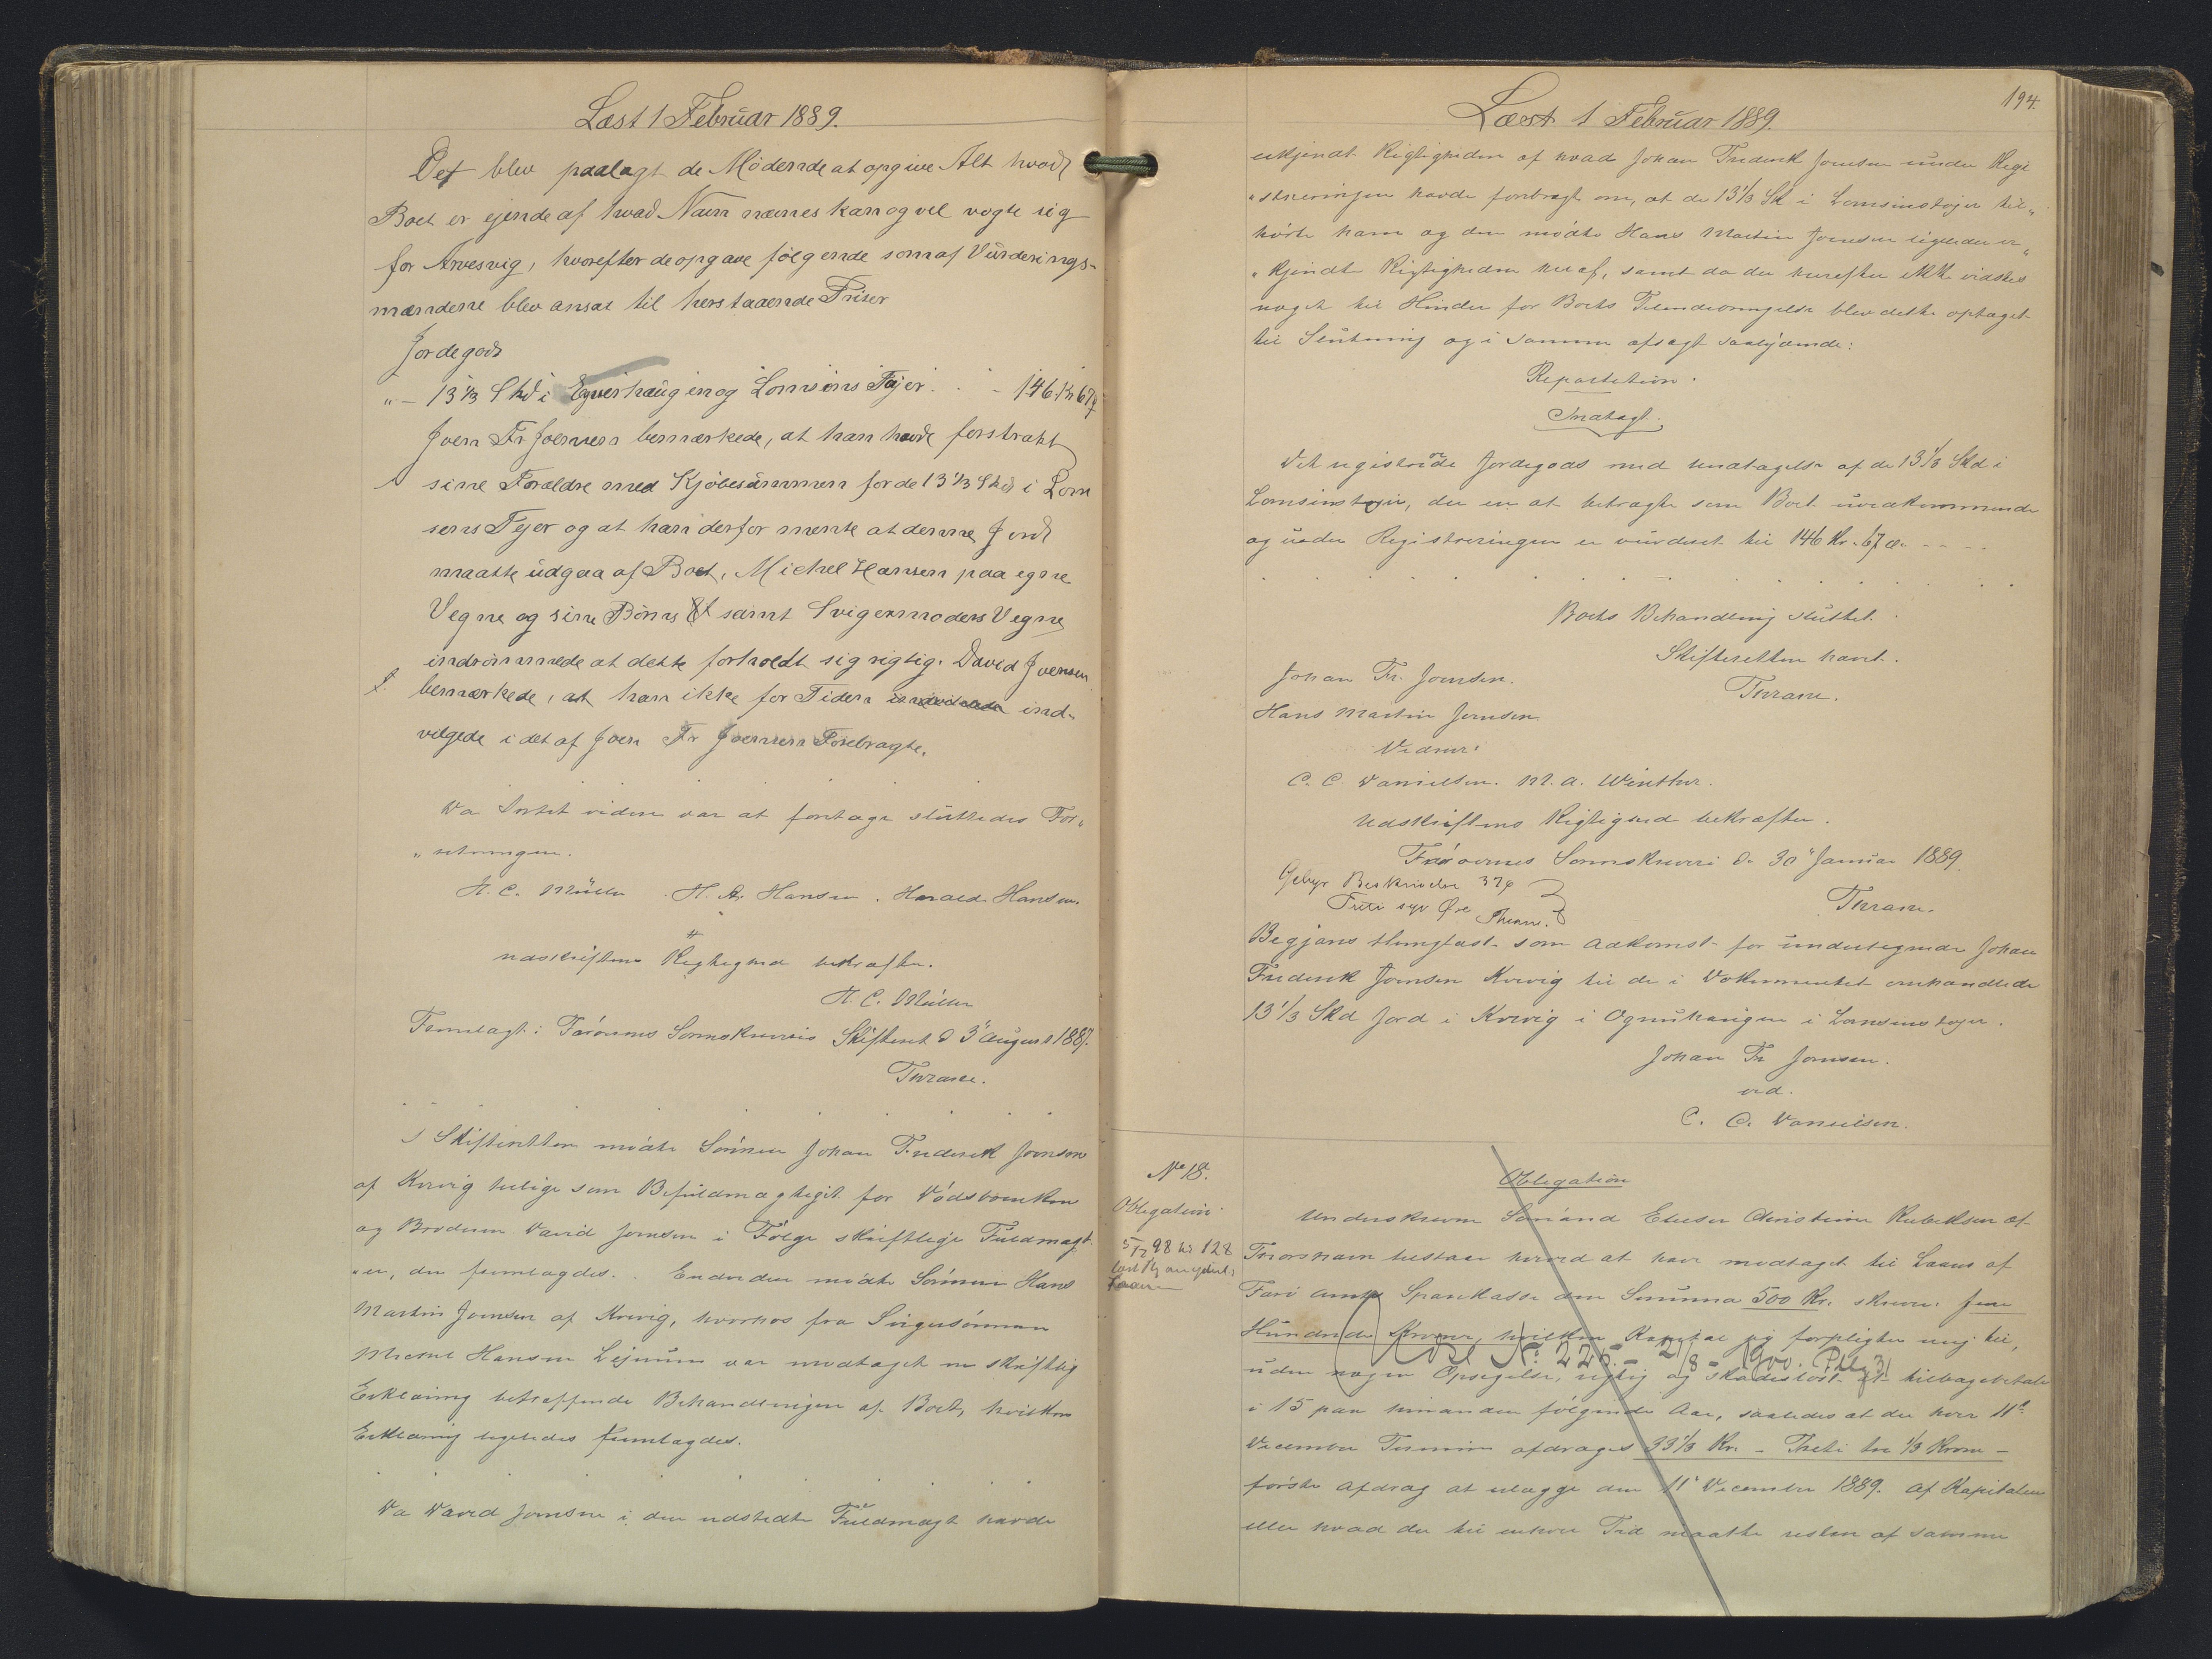 Læst 1 Februar 1889.
Det blev paalagt de Mödende at opgive Alt hvad
Boet er ejende af hvad Navn nævnes kan og vel vogte sig
for Arvesvig, hvorefter de opgave følgende som af Vurderings-
mændene blev ansat til herstaaende Priser
Jordegods
"- 13 1/3 Skd i Egnerhaugen og Lomsins Tojer . . - 146 Kr 67 ø
Joen Fr Joensen bemærkede, at han havde forstrakt
sine Forældre med Kjöbesummen for de 13 1/3 Skd i Lom
sens Tejer og at han derfor mente at denne Jord
maatte udgaa af Boet, Michel Hansen paa egne
Vegne og sine Börns samt Svigermoders Vegne
indrömmede at dette forholdt sig rigtig. David Joensen
bemærkede, at han ikke for Tiden ind-
velgede i det af Joen Fr Joensen Forebragte.
Da Intet videre var at foretage sluttedes For„
„retningen.
H. C. Müller . H. A. Hansen . Harald Hansen.
Udskriftens Rigtighed bekræfter.
H. C. Müller
Fremlagt i Færöernes Sorenskriveris Skifteret d 3' August 1887.
Thrane.
I Skifteretten mödte Sönnen Johan Frederik Joensen
af Kvivig tillige som Befuldmægtiget for Dödsboenken
og Broderen David Joensen i Fölge skriftlige Fuldmagt
„er, der fremlagdes. Endvidere mödte Sönnen Hans
Martin Joensen af Kvivig, hvorhos fra Svigersönnen
Michel Hansen Lejnum var modtaget en skriftlig
Erklæring betræffende Behandlingen af Boet, hvilken
Erklæring ligeledes fremlagdes.
Da David Joensen i den udstedte Fuldmagt havde
194.
Læst 1 Februar 1889.
erkjendt Rigtigheden af hvad Johan Frederik Joensen under Regi
„streringen havde forebragt om, at de 13 1/3 Sk i Lomsinstojer til„
hörte ham og den mödte Hans Martin Joensen ligeledes er„
„kjendte Rigtigheden heraf, samt da der herefter ikke vidstes
noget til Hinder for Boets Tilendebringelse blev dette optaget
til Slutning og i samme afsagt saalydende:
Repartition.
Indtægt.
Det registrerede Jordegods med Undtagelse af de 13 1/3 Skd i
Lomsinstojer, der er at betragte som Boet uvedkommende
og under Registreringen er vurderet til 146 Kr. 67 Ø. - - - -
Boets Behandling sluttet.
Skifteretten hævet.
Thrane.
Johan Fr. Joensen.
Hans Martin Joensen
Vidner:
C. C. Danielsen. M. A. Winther.
Udskriftens Rigtighed bekræfter.
Færöernes Sorenskriveri d. 30' Januar 1889
Thrane.
Gebyr Beskrivelse 37 ø
Treti syv Øre Thrane.
Begjæres thinglæst som Adkomst for undertegnede Johan
Frederik Joensen Kvivig til de i Dokumentet omhandlede
13 1/3 Skd Jord i Kvivig i Ognuhaugen i Lomsinstojer.
Johan Fr Joensen.
vid.
C. C. Danielsen.
No 18.
Obligation.
5/12 98 No 128
Obligation
Underskreven Sömand Elieser Christian Rubeksen af
Thorshavn tilstaar herved at have modtaget til Laans af
Færö Amts Sparekasse den Summa 500 Kr. skriver: fem
Hundrede Kroner, hvilken Kapital jeg forpligter mig til,
uden nogen Opsigelse, rigtig og skadeslöst at tilbagebetale
Udsl No. 225. - 21/8 - 1900. Pllg 31
i 15 paa hinanden fölgende Aar, saaledes at der hver 11te
December Termin afdrages 33 1/3 Kr. - Treti tre 1/3 Krone -
förste Afdrag at erlægge den 11' December 1889. Af Kapitalen
eller hvad der til enhver Tid maatte restere af samme